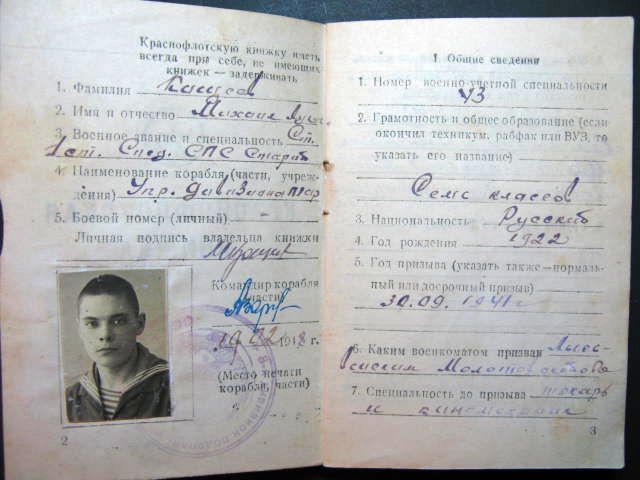 Краснофлотскую книжку иметь
всегда при себе, не имеющих
книжек — задерживать
1. Фамилия
2. Имя и отчество Михаил
3. Военное звание и специальность Ст.
1 ст. Спец. СПС
4. Наименование корабля (части, учреж-
дения) Упр. дивизиона
5. Боевой номер (личный) -
Личная подпись владельца книжки
Командир корабля
(части)
1948 г.
(Место печати
корабля, части)
2
I. Общие сведения
1. Номер военно-учетной специальности
43
2. Грамотность и общее образование (если
окончил техникум, рабфак или ВУЗ, то
указать его название)
Семь классов
3. Национальность Русский
4. Год рождения 1922
5. Год призыва (указать также — нормаль-
ный или досрочный призыв)
30.09.1941 г
6. Каким военкоматом призван Лысь-
венским Молотов
7. Специальность до призыва токарь
и киномеханик
3